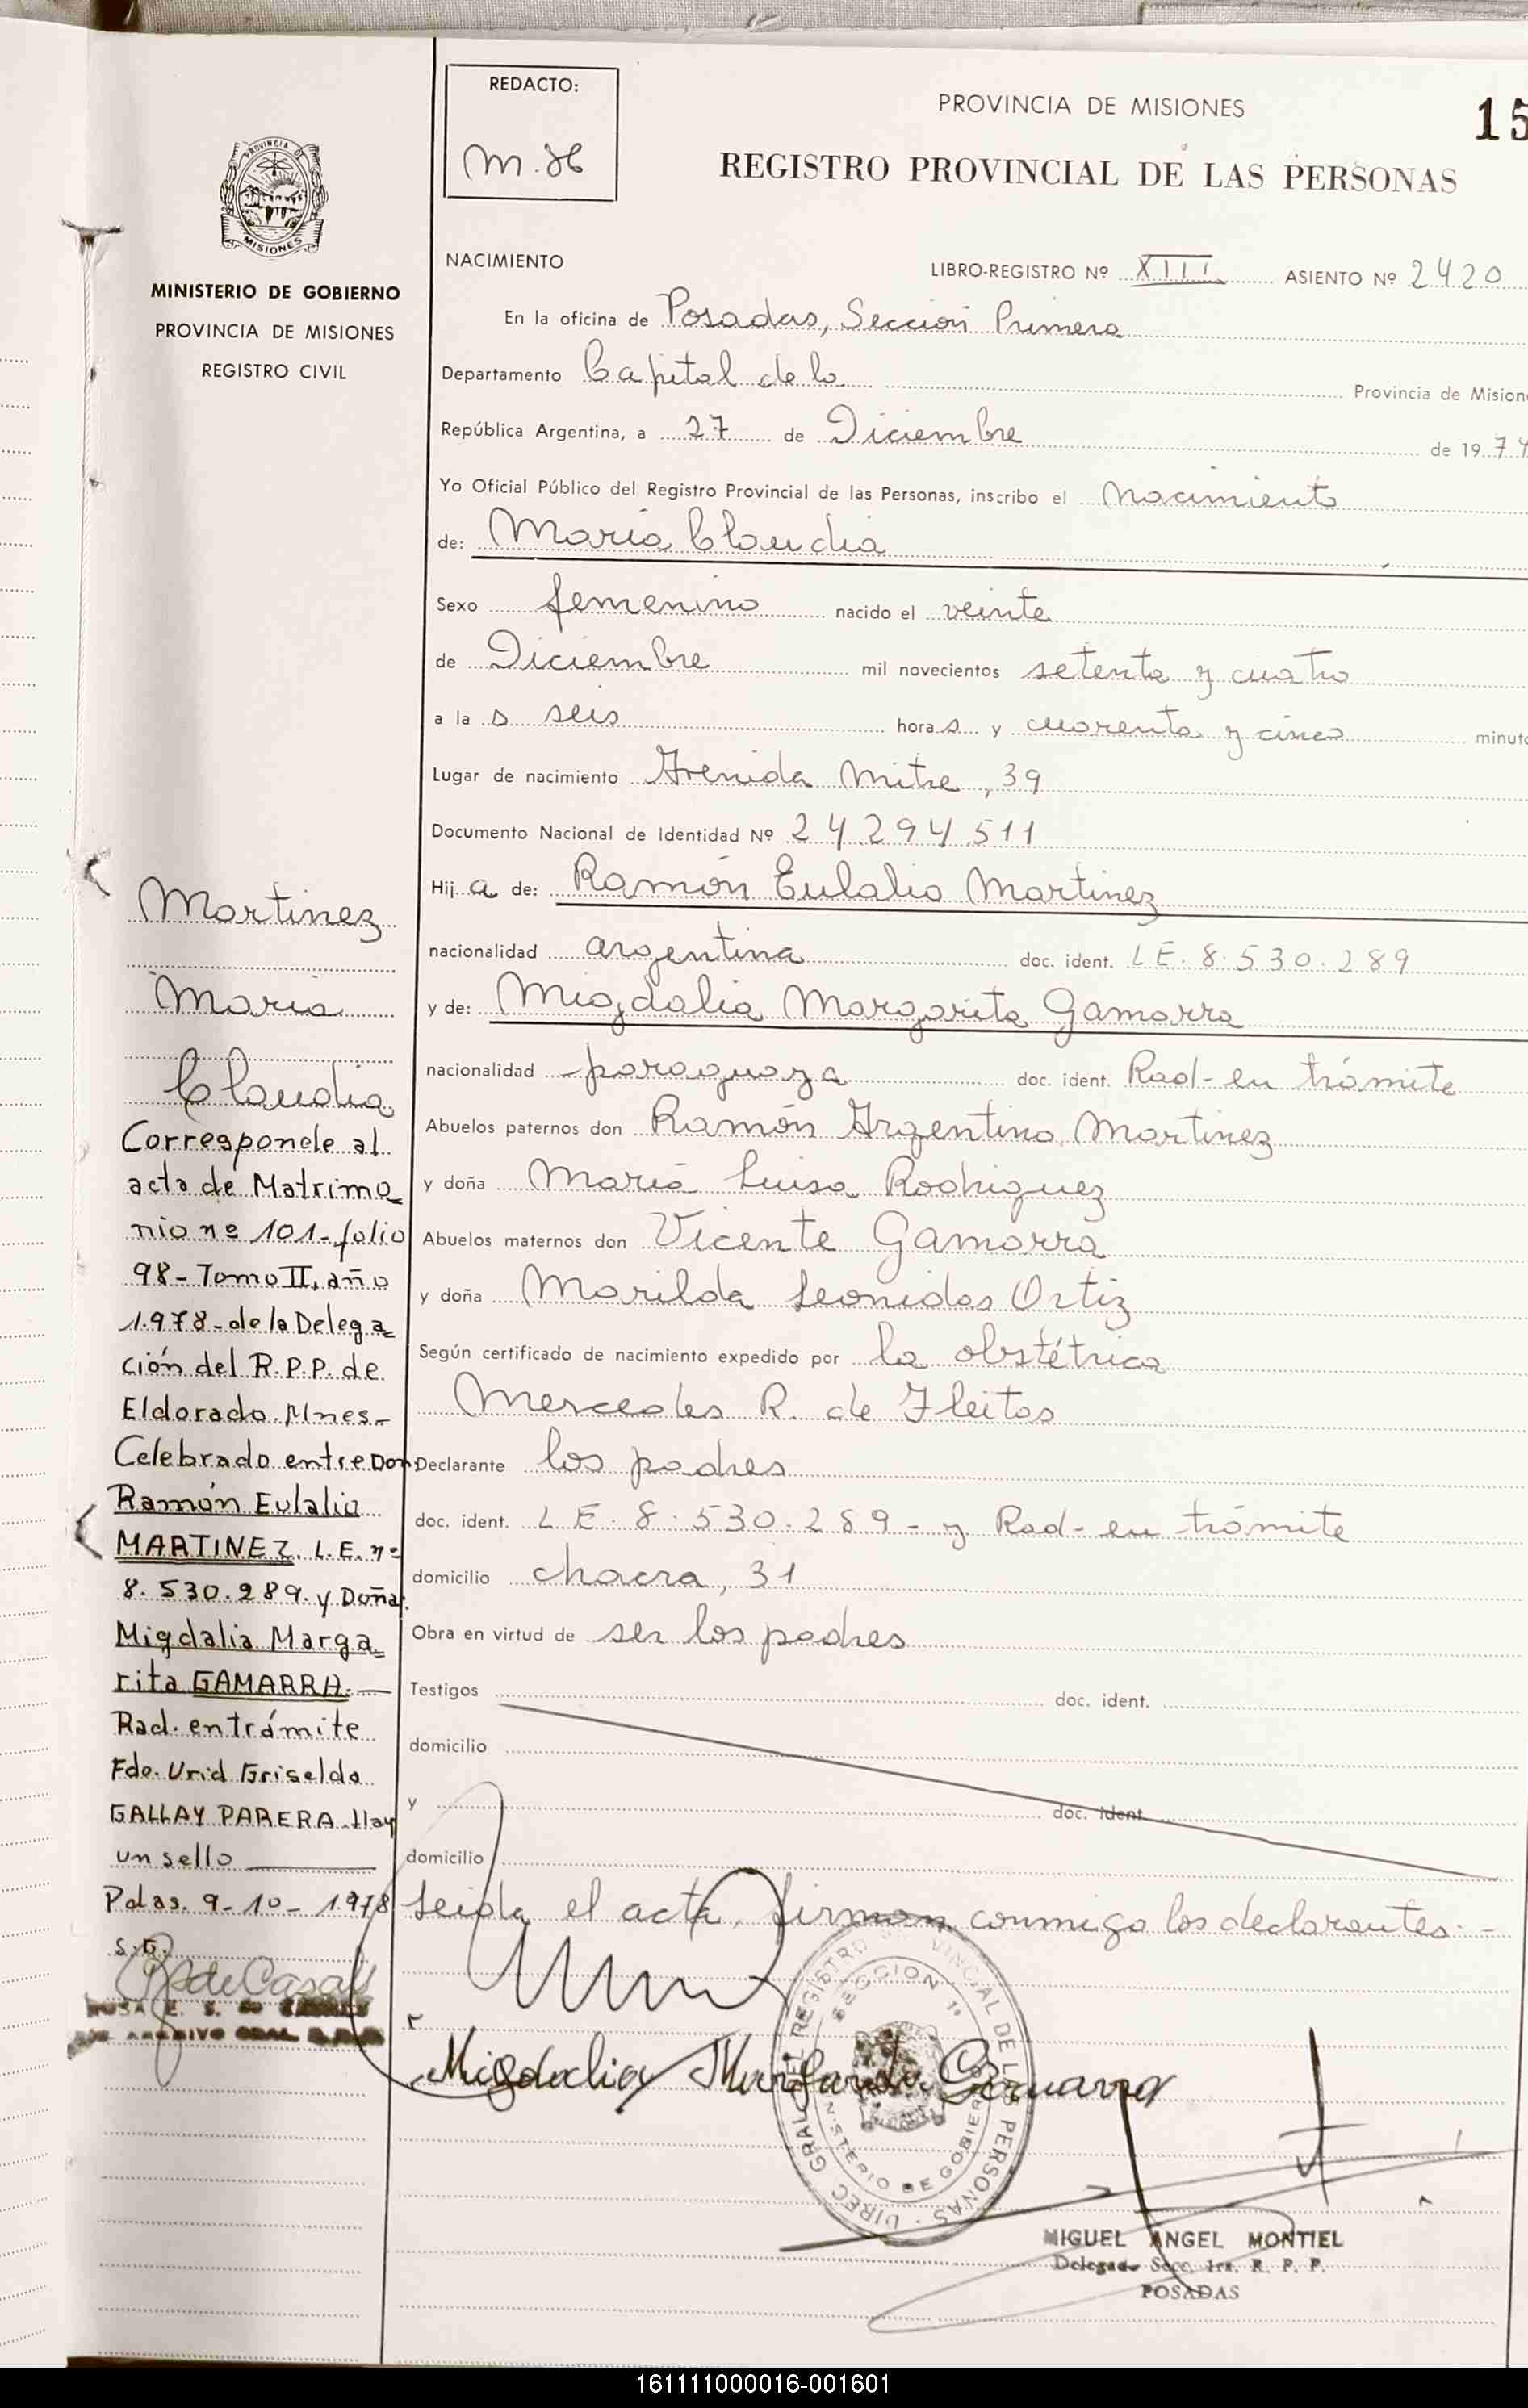 REDACTO:
m.
PROVINCIA DE MISIONES
15
REGISTRO PROVINCIAL DE LAS PERSONAS
PROVINCIA
MISIONES
MINISTERIO DE GOBIERNO
PROVINCIA DE MISIONES
REGISTRO CIVIL
NACIMIENTO
LIBRO-REGISTRO Nº XIII ASIENTO Nº 2420
En la oficina de Posadas, Sección Primera
Departamento Capital de la Provincia de Mision
República Argentina, a 27 de Diciembre de 1974
Yo Oficial Público del Registro Provincial de las Personas, inscribo el nacimiento
de: María Claudia
Sexo femenino nacido el veinte
de Diciembre mil novecientos setenta y cuatro
a la s seis hora s y cuarenta y cinco minuto
Lugar de nacimiento Avenida Mitre, 39
Documento Nacional de Identidad Nº 24.294.511
Hij a de: Ramón Eulalio Martinez
nacionalidad argentina doc. ident. LE. 8.530.289
y de: Migdalia Margarita Gamarra
nacionalidad paraguaya doc. ident. Rad- en trámite
Abuelos paternos don Ramón Argentino Martinez
y doña María Luisa Rodriguez
Abuelos maternos don Vicente Gamarra
y doña Marilda Leonidas Ortiz
Según certificado de nacimiento expedido por la obstétrica
Mercedes R. de Fleitas
Declarante los padres
doc. ident. LE. 8.530.289- y Rad- en trámite
domicilio chacra, 31
Obra en virtud de ser los padres
Testigos doc. ident.
domicilio
y doc. ident.
domicilio
Leida el acta, firman conmigo los declarantes.-
Martinez
Maria
Claudia
Corresponde al
acta de Matrimo
nio nº 101-folio
98-Tomo II, año
1.978-de la Delega
ción del R.P.P. de
Eldorado. Mnes-
Celebrado entre Don
Ramón Eulalio
MARTINEZ. L.E. nº
8.530.289. y Doña
Migdalia Marga
rita GAMARRA.—
Rad. en trámite
Fdo. Urid Griselda
GALLAY PARERA. Hay
un sello
Pdas. 9-10-1978
S.G.
de Casal
ROSA E. S. de
ARCHIVO GRAL
Migdalia Margarita Gamarra
DIREC. GRAL. DEL REGISTRO PROVINCIAL DE LAS PERSONAS
SECCION 1ª
MINISTERIO DE GOBIERNO
MIGUEL ANGEL MONTIEL
Delegado Secc. 1ra. R. P. P.
POSADAS
161111000016-001601